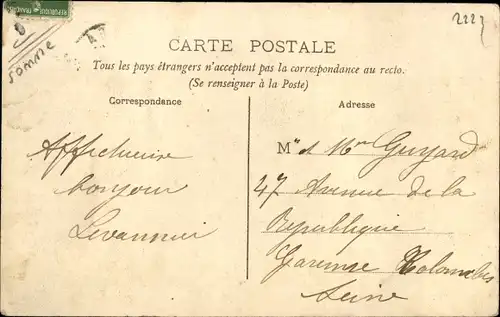 2227
REPUBLIQUE FRANÇAISE
Somme
CARTE POSTALE
Tous les pays étrangers n'acceptent pas la correspondance au recto.
(Se renseigner à la Poste)
Correspondance
Adresse
Affectueux
bonjour
M et Me Guyard
47 Avenue de la
République
Garenne Colombes
Seine